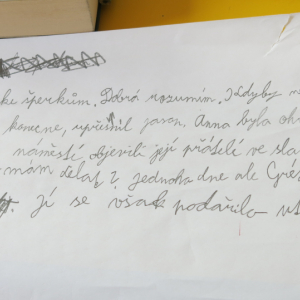 ke šperkům. Dobrá rozumím. Kdyby
konecne, upřesnil jason. Anna byla
náměstí objevili její přátelé ve
mám dělat? Jednoho dne ale
Jí se však podařilo